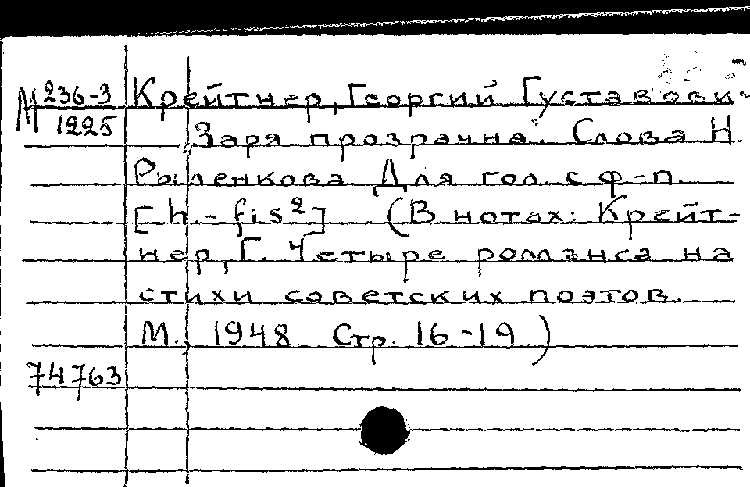 М 236-3 Крейтнер, Георгий Густавови-
1225 Заря прозрачна. Слова Н.
Рыленкова Для гол. с ф-п.
[h.-fis²] (В нотах: Крейт-
нер, Г. Четыре романса на
стихи советских поэтов.
М., 1948 Стр. 16-19)
74763